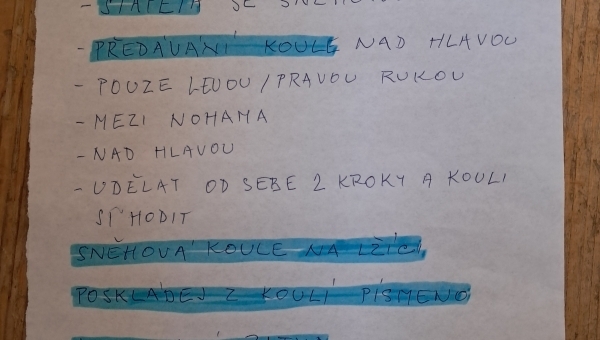 - ŠTAFETA SE SNĚHOVOU
- PŘEDÁVÁNÍ KOULE NAD HLAVOU
- POUZE LEVOU/PRAVOU RUKOU
- MEZI NOHAMA
- NAD HLAVOU
- UDĚLAT OD SEBE 2 KROKY A KOULI
SI HODIT
SNĚHOVÁ KOULE NA LŽÍCI
POSKLÁDEJ Z KOULÍ PÍSMENO